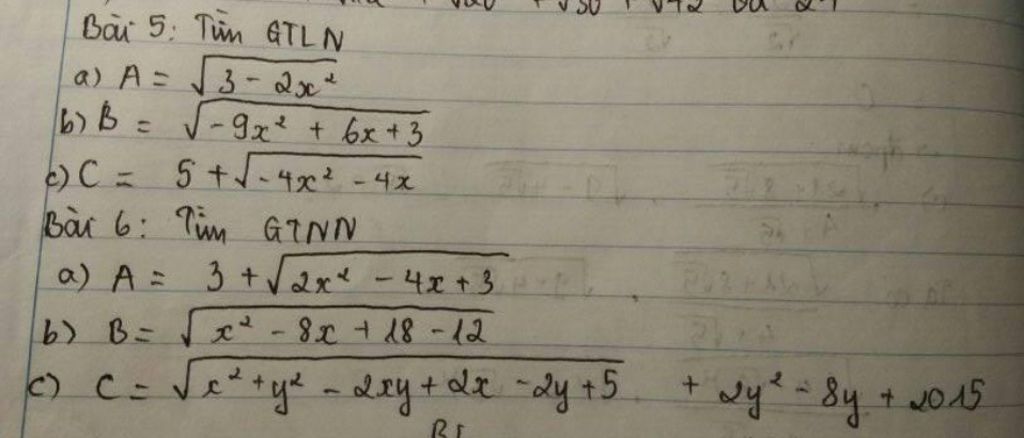 Bài 5: Tìm GTLN
a) A = √(3 - 2x²)
b) B = √(-9x² + 6x + 3)
c) C = 5 + √(-4x² - 4x)
Bài 6: Tìm GTNN
a) A = 3 + √(2x² - 4x + 3)
b) B = √(x² - 8x + 18 - 12)
c) C = √(x² + y² - 2xy + 2x - 2y + 5) + 2y² - 8y + 2015